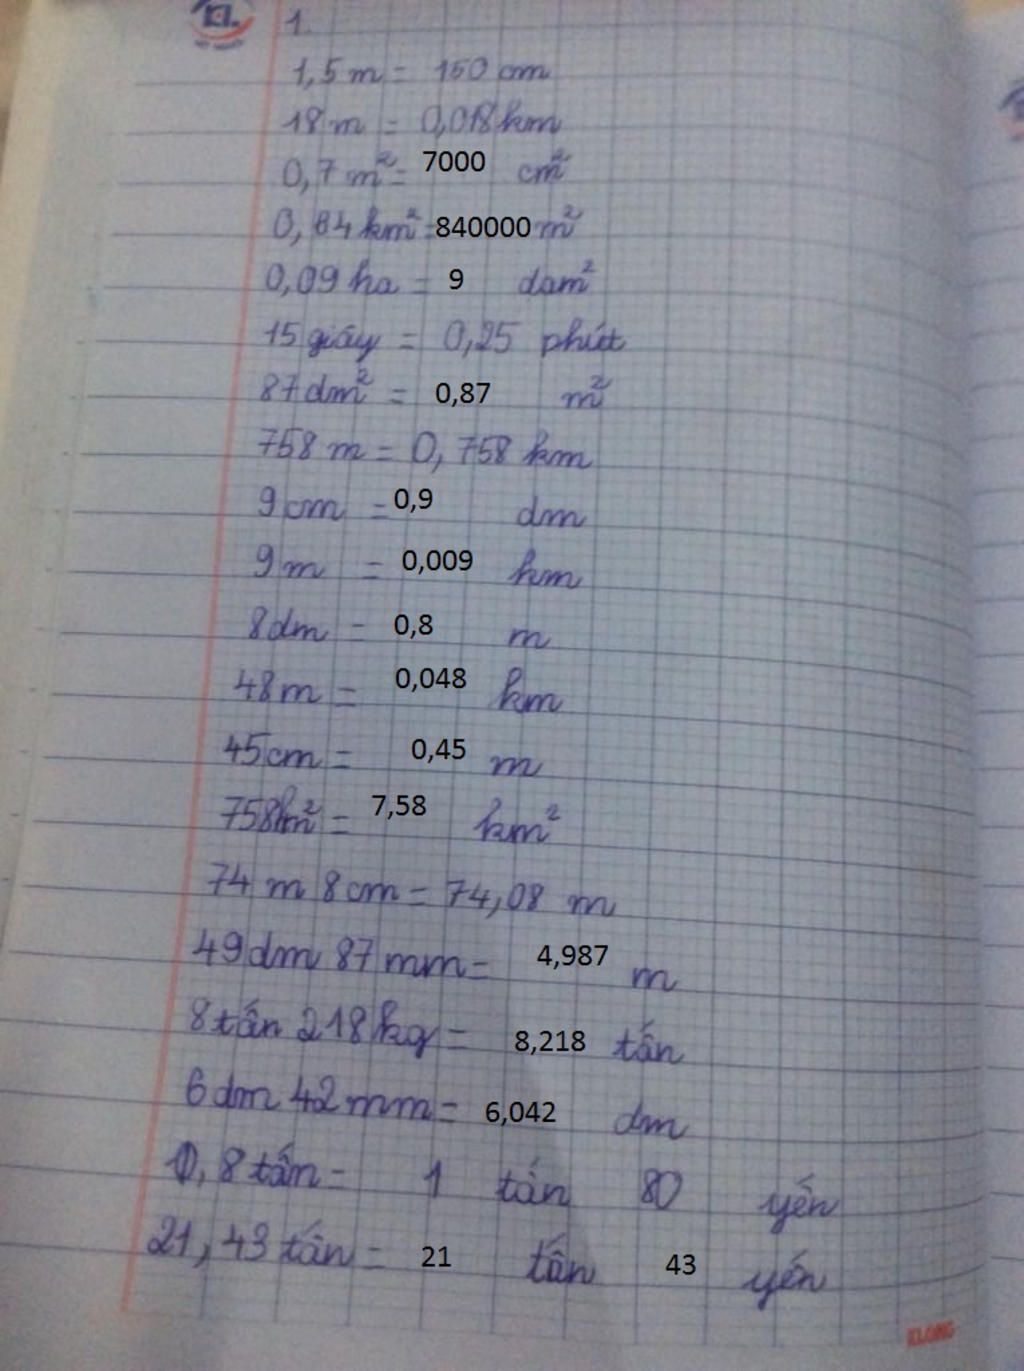 KL.
1.
1,5 m = 150 cm
18 m = 0,018 km
0,7 m² = 7000 cm²
0,84 km² = 840000 m²
0,09 ha = 9 dam²
15 giây = 0,25 phút
87 dm² = 0,87 m²
758 m = 0,758 km
9 cm = 0,9 dm
9 m = 0,009 km
8 dm = 0,8 m
48 m = 0,048 km
45 cm = 0,45 m
758 hm² = 7,58 km²
74 m 8 cm = 74,08 m
49 dm 87 mm = 4,987 m
8 tấn 218 kg = 8,218 tấn
6 dm 42 mm = 6,042 dm
1,8 tấn = 1 tấn 80 yến
21,43 tấn = 21 tấn 43 yến
KLONG